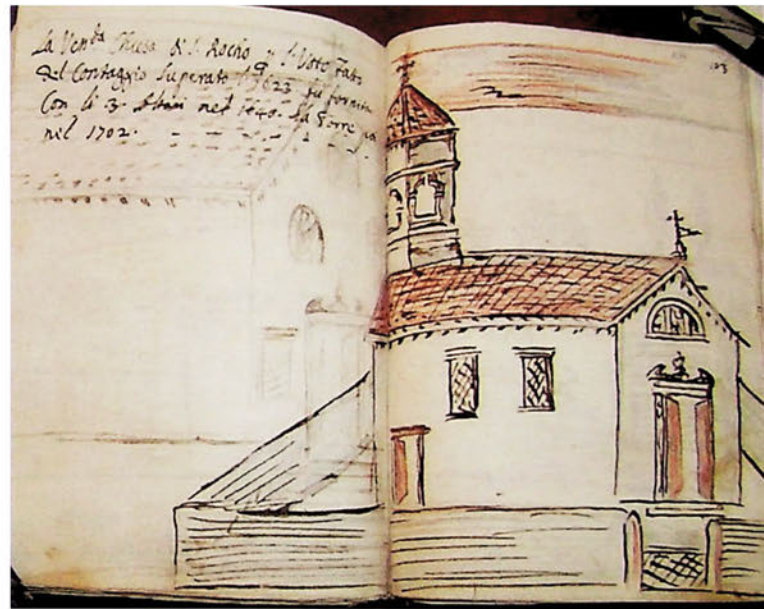 La Ven.da Chiesa di S. Rocho p il Voto fatto
Del Contaggio Superato 1623 fu fornita
Con li 3. Altari nel 1640. La Torre poi
nel 1702.
123